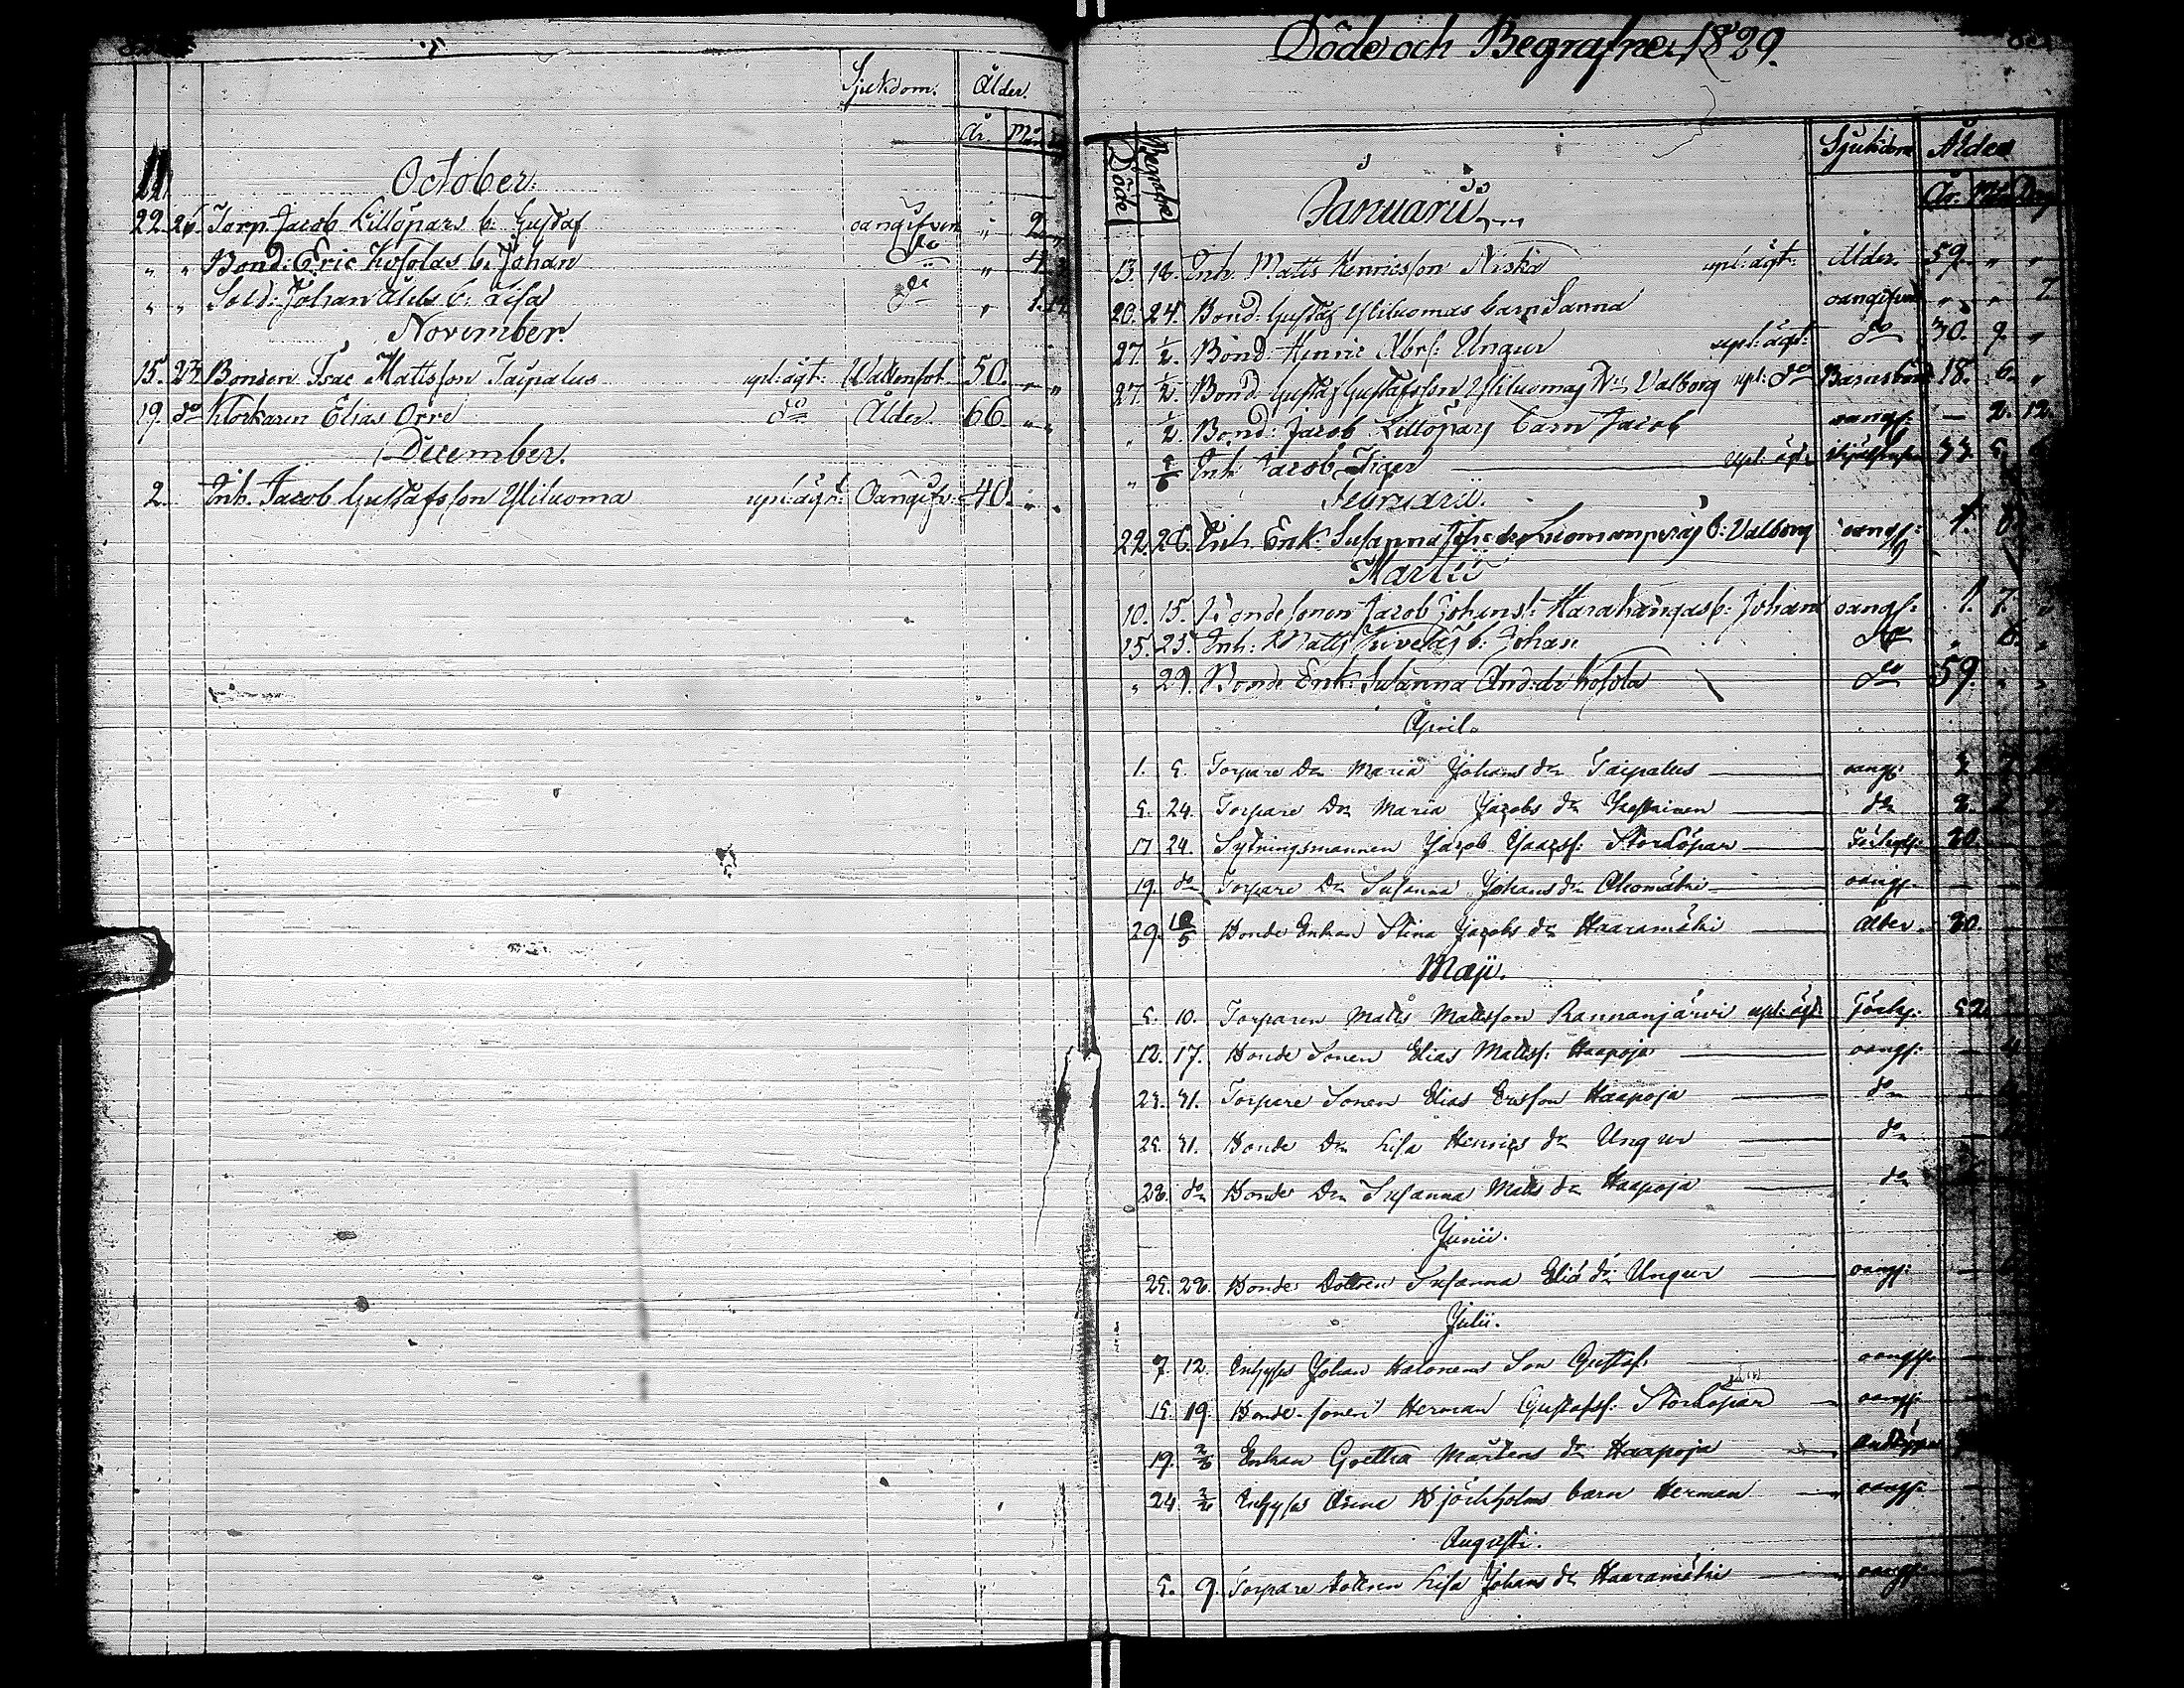 Sjukdom. Ålder.
År. Mån
October.
22. 26. Torp. Jacob Lillöpars b: Gustaf oangifven " 2 "
" " Bond: Eric Kosolas b: Johan do " 4
" " Sold: Johan b: Lisa do " 1.
November.
15. 23 Bonden Isac Mattsson Taipalus upl: ägt: Wattensot 50. " "
19. do Klockaren Elias Orre do Ålder. 66 " "
December.
2. Inh. Jacob Gustafsson Yliluoma upl: ägt: Oangifv: 40. " "
Döde och Begrafne. 1829.
Döde Begrafne Sjukdom Ålder
År. Mån Dag
Januarii
13. 18. Inh. Matts Henricsson Niska upl: ägt: Ålder. 59. " "
20. 24. Bond: Gustaf Yliluomas barn Sanna oangifven " " 7.
27. 1/2. Bond: Henric Abrs: Ungur upl: ägt: do 30. 9. "
27. 1/2. Bond. Gustaf Gustafsson Yliluomas Valborg upl: do Barnsbörd 18. 6. "
" 1/2. Bond: Jacob Lillöpars barn Jacob oangf: — 2. 12.
" Inh: Jacob Tiger upl: ägt: 33 5
Februarii.
22. 28. Inh. Enk: Susanna Luomanperäs b: Valborg oangf:
Martii
10. 15. Bondesonen Jacob Johanss: Harahangas b: Johan oangf: 1. 7. "
15. 25. Inh: Matts Kiveläs b: Johan do " 6. "
" 29. Bonde Enk: Susanna And: dr Kosola do 59. " "
April.
1. 5. Torpare Dn Maria Johans dr Taipalus oangf:
5. 24. Torpare Dn Maria Jacobs dr do
17 24. Sytningsmannen Jacob Isacss: Storlöpar
19. do Torpare Dn Susanna Johans dr Ahomäki oangf: —
29. 10/5 Bonde Enkan Stina Jacobs dr Haaramäki Ålder.
Maji.
5. 10. Torparen Matts Mattsson Rannanjärvi upl: ägt: 52
12. 17. Bonde Sonen Elias Mattss: Haapoja oangf: — 4
23. 31. Torpare Sonen Elias Ersson Haapoja do
25. 31. Bonde Dn Lisa Henrics dr Ungur do
28. do Bonde Dn Susanna Matts dr Haapoja do
Junii.
25. 28. Bonde Dottren Susanna Eliä dr Ungur oangf:
Julii.
7. 12. Inhyses Johan Halonens Son Gustaf oangf:
15. 19. Bonde-sonen Herman Gustafss: Storlöpar oangf:
19. Enkan Gretha Mårtens dr Haapoja
24 Inhyses Anna Björkholms barn Herman oangf:
Augusti.
5. 9. Torpare dottren Lisa Johans dr Haaramäki oangf: